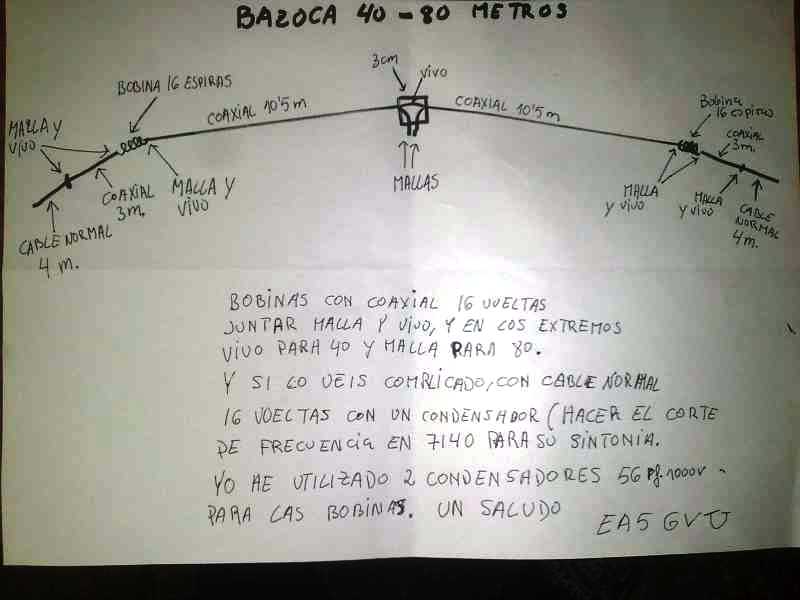 BAZOCA 40 - 80 METROS
3cm
VIVO
BOBINA 16 ESPIRAS
COAXIAL 10'5 m
COAXIAL 10'5 m
Bobina
16 espiras
MALLA Y
VIVO
COAXIAL
3m.
MALLA Y
VIVO
MALLAS
COAXIAL
3m.
MALLA
Y VIVO
MALLA
Y VIVO
CABLE
NORMAL
4 m.
CABLE NORMAL
4 m.
BOBINAS CON COAXIAL 16 VUELTAS
JUNTAR MALLA Y VIVO, Y EN LOS EXTREMOS
VIVO PARA 40 Y MALLA PARA 80.
Y SI LO VEIS COMPLICADO, CON CABLE NORMAL
16 VUELTAS CON UN CONDENSADOR (HACER EL CORTE
DE FRECUENCIA EN 7140 PARA SU SINTONIA.
YO HE UTILIZADO 2 CONDENSADORES 56 Pf. 1000V
PARA LAS BOBINAS. UN SALUDO
EA5GVJ